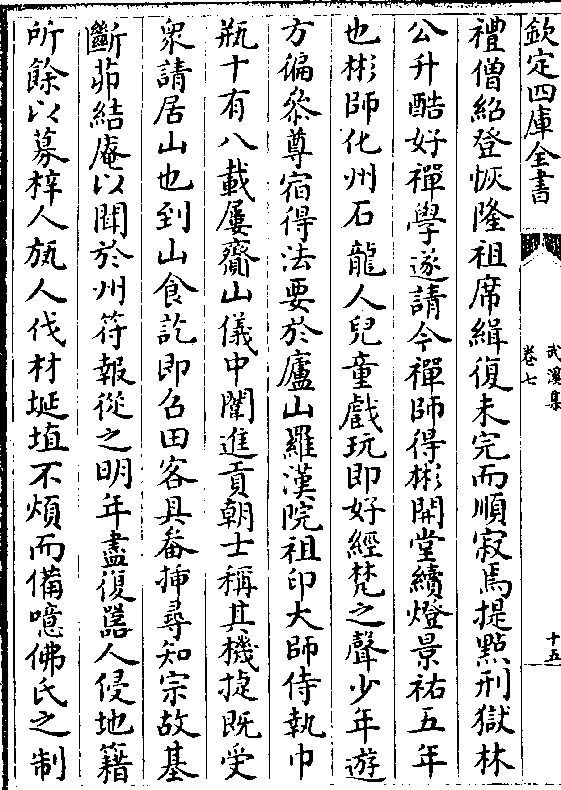 欽定四庫全書
武溪集
卷七
十五
禮僧紹登恢隆祖席緝復未完而順寂焉提點刑獄林
公升酷好禪學遂請今禪師得彬開堂續燈景祐五年
也彬師化州石龍人兒童戲玩即好經梵之聲少年遊
方徧叅尊宿得法要於廬山羅漢院祖印大師侍執巾
瓶十有八載屢齎山儀中闈進貢朝士稱其機捷既受
衆請居山也到山食訖即召田客具畚挿尋知宗故基
斷茆結庵以聞於州符報從之明年盡復嚚人侵地籍
所餘以募梓人瓬人伐材埏埴不煩而備噫佛氏之制